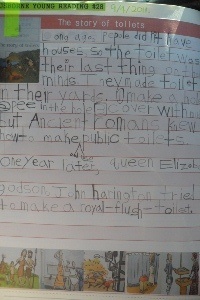 USBORNE YOUNG READING #28 9/1/2011
The story of toilets
Long ago, people didn't have
houses. So the toilet was
their last thing on their
minds. They made toilet
in their way. Make a
in the cover without
But Ancient Romans knew
how to make public toilets.
One year later, queen Elizab
godson, John harington tried
to make a royal-flush-toilet.